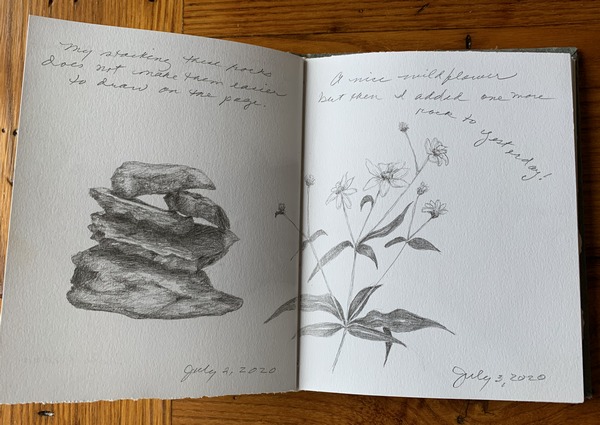 My stacking these rocks
does not make them easier
to draw on the page.
July 2, 2020
A nice wildflower
but then I added one more
rock to
yesterday!
July 3, 2020